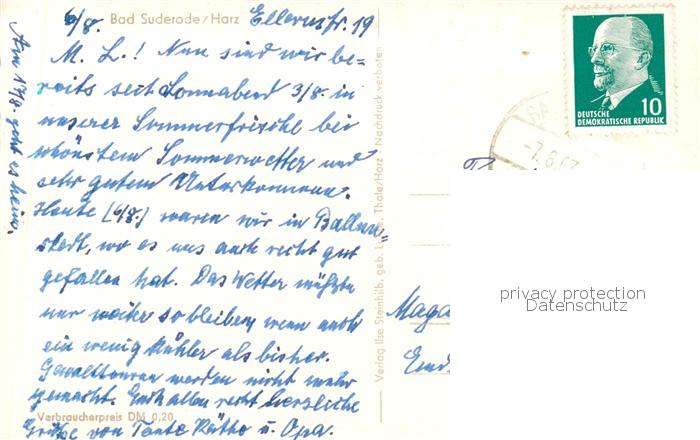 6/8. Bad Suderode/Harz Ellernstr. 19
M. L.! Nun sind wir be-
reits seit Sonnabend 3/8. in
unserer Sommerfrische bei
schönstem Sommerwetter und
sehr gutem Unterkommen.
Heute (6/8.) waren wir in Ballen=
stedt, wo es uns auch recht gut
gefallen hat. Das Wetter müßte
nur weiter so bleiben, wenn auch
ein wenig kühler als bisher.
Gewalttouren werden nicht mehr
gemacht. Euch allen recht herzliche
Verbraucherpreis DM 0,20
Grüße von Tante Käthe u. Opa.
Am 17/8. geht es heim.
Verlag Ilse Steinhilb, geb. Thale/Harz Nachdruck verboten
10
DEUTSCHE
DEMOKRATISCHE REPUBLIK
-7.8.63
privacy protection
Datenschutz
Magd